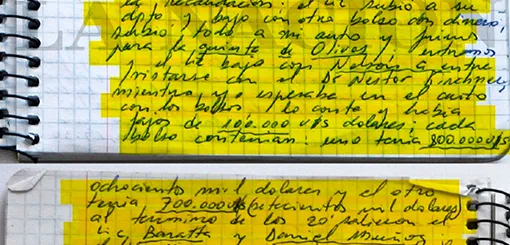 la recaudacion. el lic subio a su
dpto y bajo con otro bolso con dinero,
subio todo a mi auto y fuimos
para la quinta de Olivos, entramos
y el Lic bajo con Nelson a entre
vistarse con el Dr Nestor Kirchner,
mientras yo esperaba en el auto
con los bolsos. Lo conte y habia
fajos de 100.000 U$S dolares, cada
bolso contenian: uno tenia 800.000 U$S
ochocientos mil dolares y el otro
tenia 700.000 U$S (setecientos mil dolares)
al termino de los 20' salieron el
Lic Baratta y Daniel Muñoz